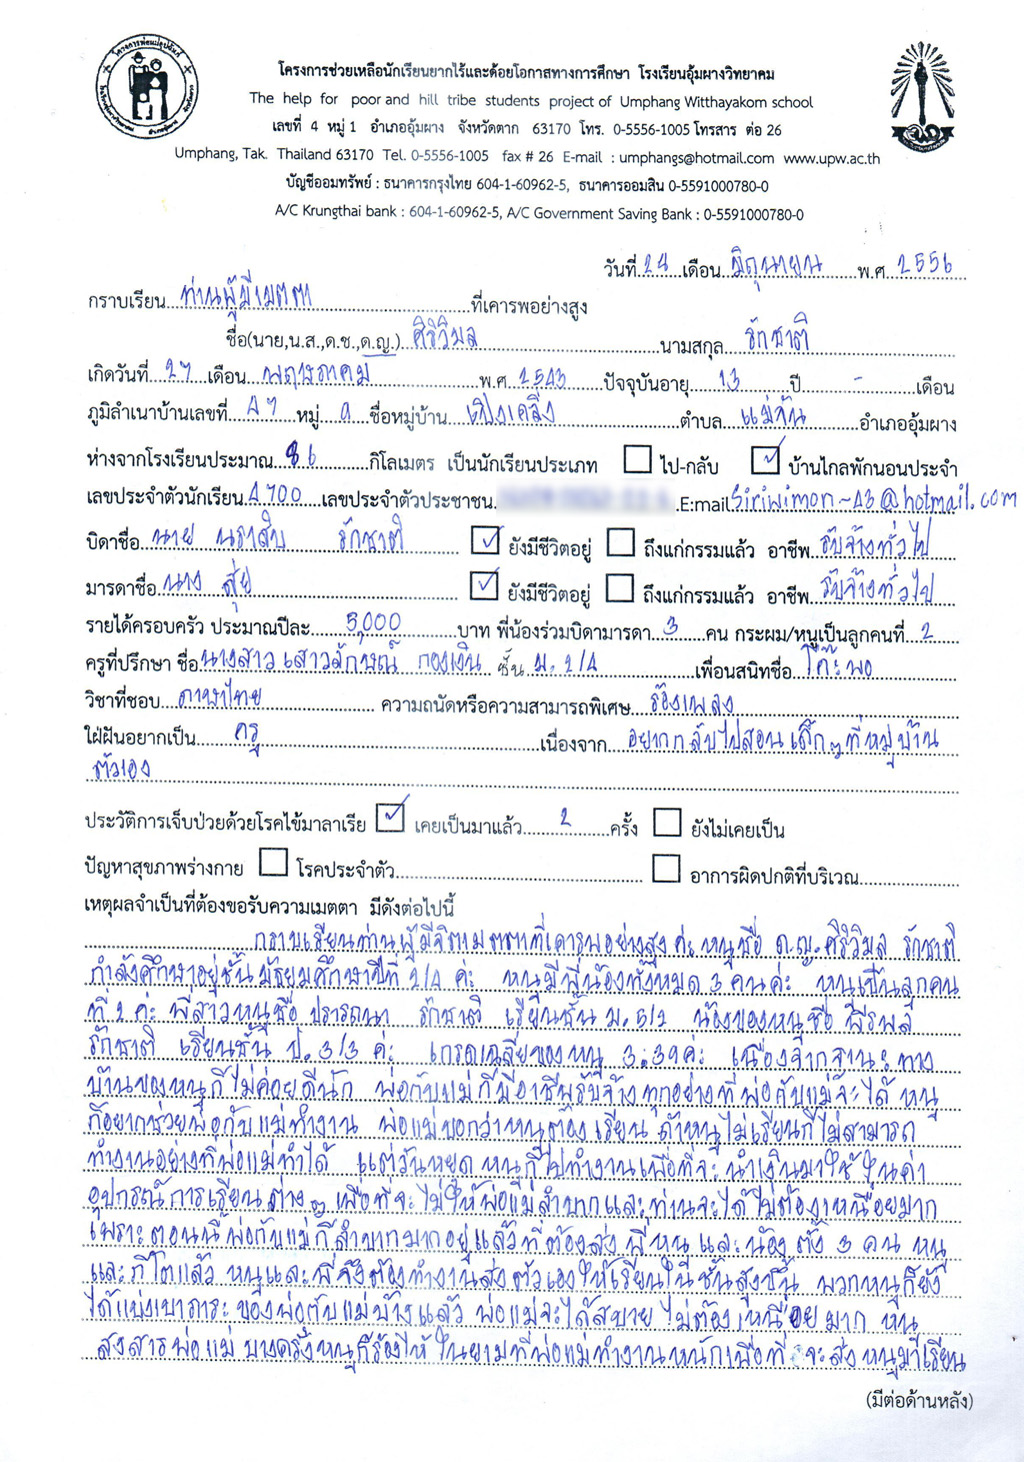 โครงการช่วยเหลือนักเรียนยากไร้และด้อยโอกาสทางการศึกษา โรงเรียนอุ้มผางวิทยาคม
The help for poor and hill tribe students project of Umphang Witthayakom school
เลขที่ 4 หมู่ 1 อำเภออุ้มผาง จังหวัดตาก 63170 โทร. 0-5556-1005 โทรสาร ต่อ 26
Umphang, Tak. Thailand 63170 Tel. 0-5556-1005 fax # 26 E-mail : umphangs@hotmail.com www.upw.ac.th
บัญชีออมทรัพย์ : ธนาคารกรุงไทย 604-1-60962-5, ธนาคารออมสิน 0-5591000780-0
A/C Krungthai bank : 604-1-60962-5, A/C Government Saving Bank : 0-5591000780-0
วันที่ 24 เดือน มิถุนายน พ.ศ. 2556
กราบเรียน ท่านผู้มีเมตตา ที่เคารพอย่างสูง
ชื่อ(นาย,น.ส.,ด.ช.,ด.ญ.) ศิริวิมล นามสกุล รักชาติ
เกิดวันที่ 27 เดือน พฤษภาคม พ.ศ. 2543 ปัจจุบันอายุ 13 ปี - เดือน
ภูมิลำเนาบ้านเลขที่ 47 หมู่ ๑ ชื่อหมู่บ้าน เปิ่งเคลิ่ง ตำบล แม่จัน อำเภออุ้มผาง
ห่างจากโรงเรียนประมาณ 86 กิโลเมตร เป็นนักเรียนประเภท ไป-กลับ บ้านไกลพักนอนประจำ
เลขประจำตัวนักเรียน 4700 เลขประจำตัวประชาชน E:mail Siriwimon-43@hotmail.com
บิดาชื่อ นาย นราสิบ รักชาติ ยังมีชีวิตอยู่ ถึงแก่กรรมแล้ว อาชีพ รับจ้างทั่วไป
มารดาชื่อ นาง สุ่ย ยังมีชีวิตอยู่ ถึงแก่กรรมแล้ว อาชีพ รับจ้างทั่วไป
รายได้ครอบครัว ประมาณปีละ 5,000 บาท พี่น้องร่วมบิดามารดา 3 คน กระผม/หนูเป็นลูกคนที่ 2
ครูที่ปรึกษา ชื่อ นางสาว เสาวลักษณ์ กองเงิน ชั้น ม. 2/4 เพื่อนสนิทชื่อ โค๊ะพอ
วิชาที่ชอบ ภาษาไทย ความถนัดหรือความสามารถพิเศษ ร้องเพลง
ใฝ่ฝันอยากเป็น ครู เนื่องจาก อยากกลับไปสอนเด็กๆที่หมู่บ้าน
ตัวเอง
ประวัติการเจ็บป่วยด้วยโรคไข้มาลาเรีย เคยเป็นมาแล้ว 2 ครั้ง ยังไม่เคยเป็น
ปัญหาสุขภาพร่างกาย โรคประจำตัว อาการผิดปกติที่บริเวณ
เหตุผลจำเป็นที่ต้องขอรับความเมตตา มีดังต่อไปนี้
กราบเรียนท่านผู้มีจิตเมตตาที่เคารพอย่างสูง ค่ะ หนูชื่อ ด.ญ. ศิริวิมล รักชาติ
กำลังศึกษาอยู่ชั้น มัธยมศึกษาปีที่ 2/4 ค่ะ หนูมีพี่น้องทั้งหมด 3 คนค่ะ หนูเป็นลูกคน
ที่ 2 ค่ะ พี่สาวหนูชื่อ ปรารถนา รักชาติ เรียนชั้น ม. 5/2 น้องของหนูชื่อ พีรพล
รักชาติ เรียนชั้น ป. 3/3 ค่ะ เกรดเฉลี่ยของหนู 3.39 ค่ะ เนื่องจากฐานะทาง
บ้านของหนูก็ไม่ค่อยดีนัก พ่อกับแม่ก็มีอาชีพรับจ้างทุกอย่างที่พ่อกับแม่จะได้ หนู
ก็อยากช่วยพ่อกับแม่ทำงาน พ่อแม่บอกว่าหนูต้องเรียน ถ้าหนูไม่เรียนก็ไม่สามารถ
ทำงานอย่างที่พ่อแม่ทำได้ แต่วันหยุดหนูก็ไปทำงานเพื่อที่จะนำเงินมาใช้ในค่า
อุปกรณ์การเรียนต่างๆ เพื่อที่จะไม่ให้พ่อแม่ลำบากและท่านจะได้ไม่ต้องเหนื่อยมาก
เพราะตอนนี้พ่อกับแม่ก็ลำบากมากอยู่แล้วที่ต้องส่ง พี่หนู และน้อง ตั้ง 3 คน หนู
และก็โตแล้ว หนูและพี่จึงต้องทำงานส่งตัวเองให้เรียนในชั้นสูงขึ้น พวกหนูก็ยัง
ได้แบ่งเบาภาระของพ่อกับแม่บ้างแล้ว พ่อแม่จะได้สบาย ไม่ต้องเหนื่อยมาก หนู
สงสารพ่อแม่ บางครั้งหนูก็ร้องไห้ในยามที่พ่อแม่ทำงานหนักเพื่อที่จะส่งหนูมาเรียน
(มีต่อด้านหลัง)